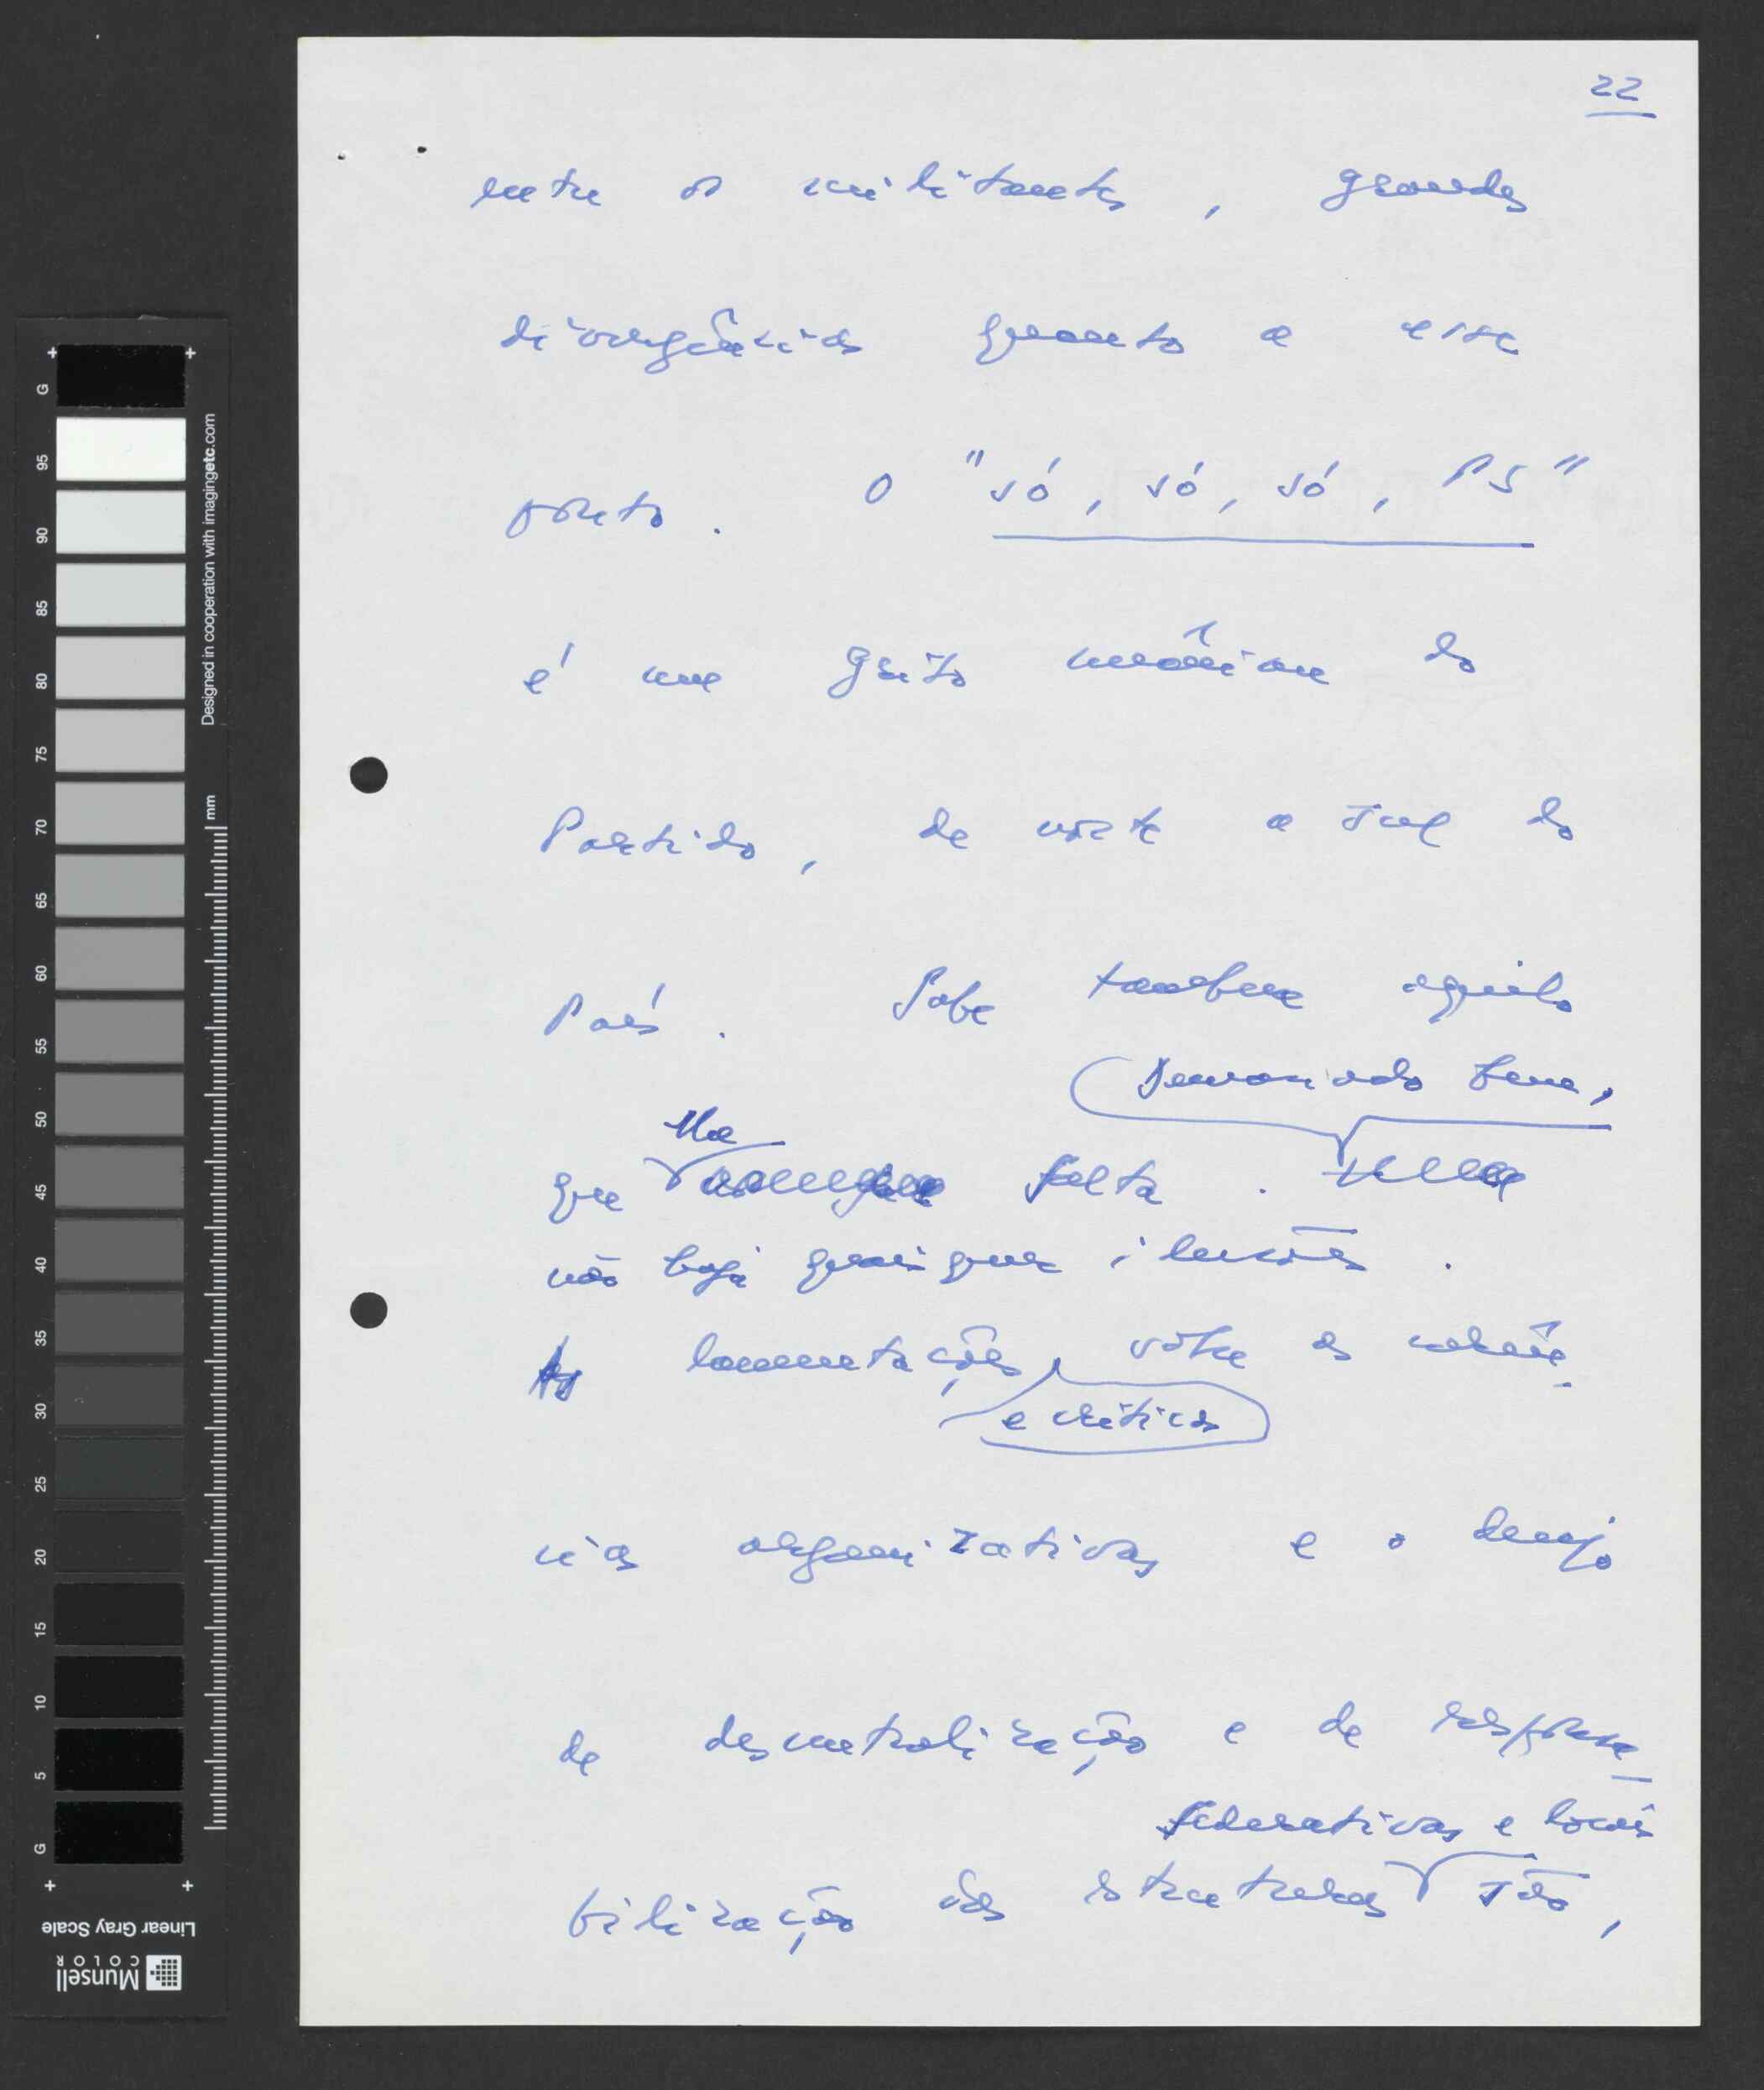 22
entre os militantes, grandes
divergências quanto a esse
ponto. O "só, só, só, PS"
é um grito unânime do
Partido, de norte a sul do
País. Sabe também aquilo
demasiado bem,
lhe
que falta.
não haja quaisquer ilusões.
As lamentações sobre as carên-
e críticas
cias organizativas e o desejo
de descentralização e de responsa-
federativas e locais
bilização das estruturas são,
G
95
90
85
80
75
70
65
60
55
50
45
40
35
30
25
20
15
10
5
G
mm
Designed in cooperation with imagingetc.com
Linear Gray Scale
Munsell
COLOR